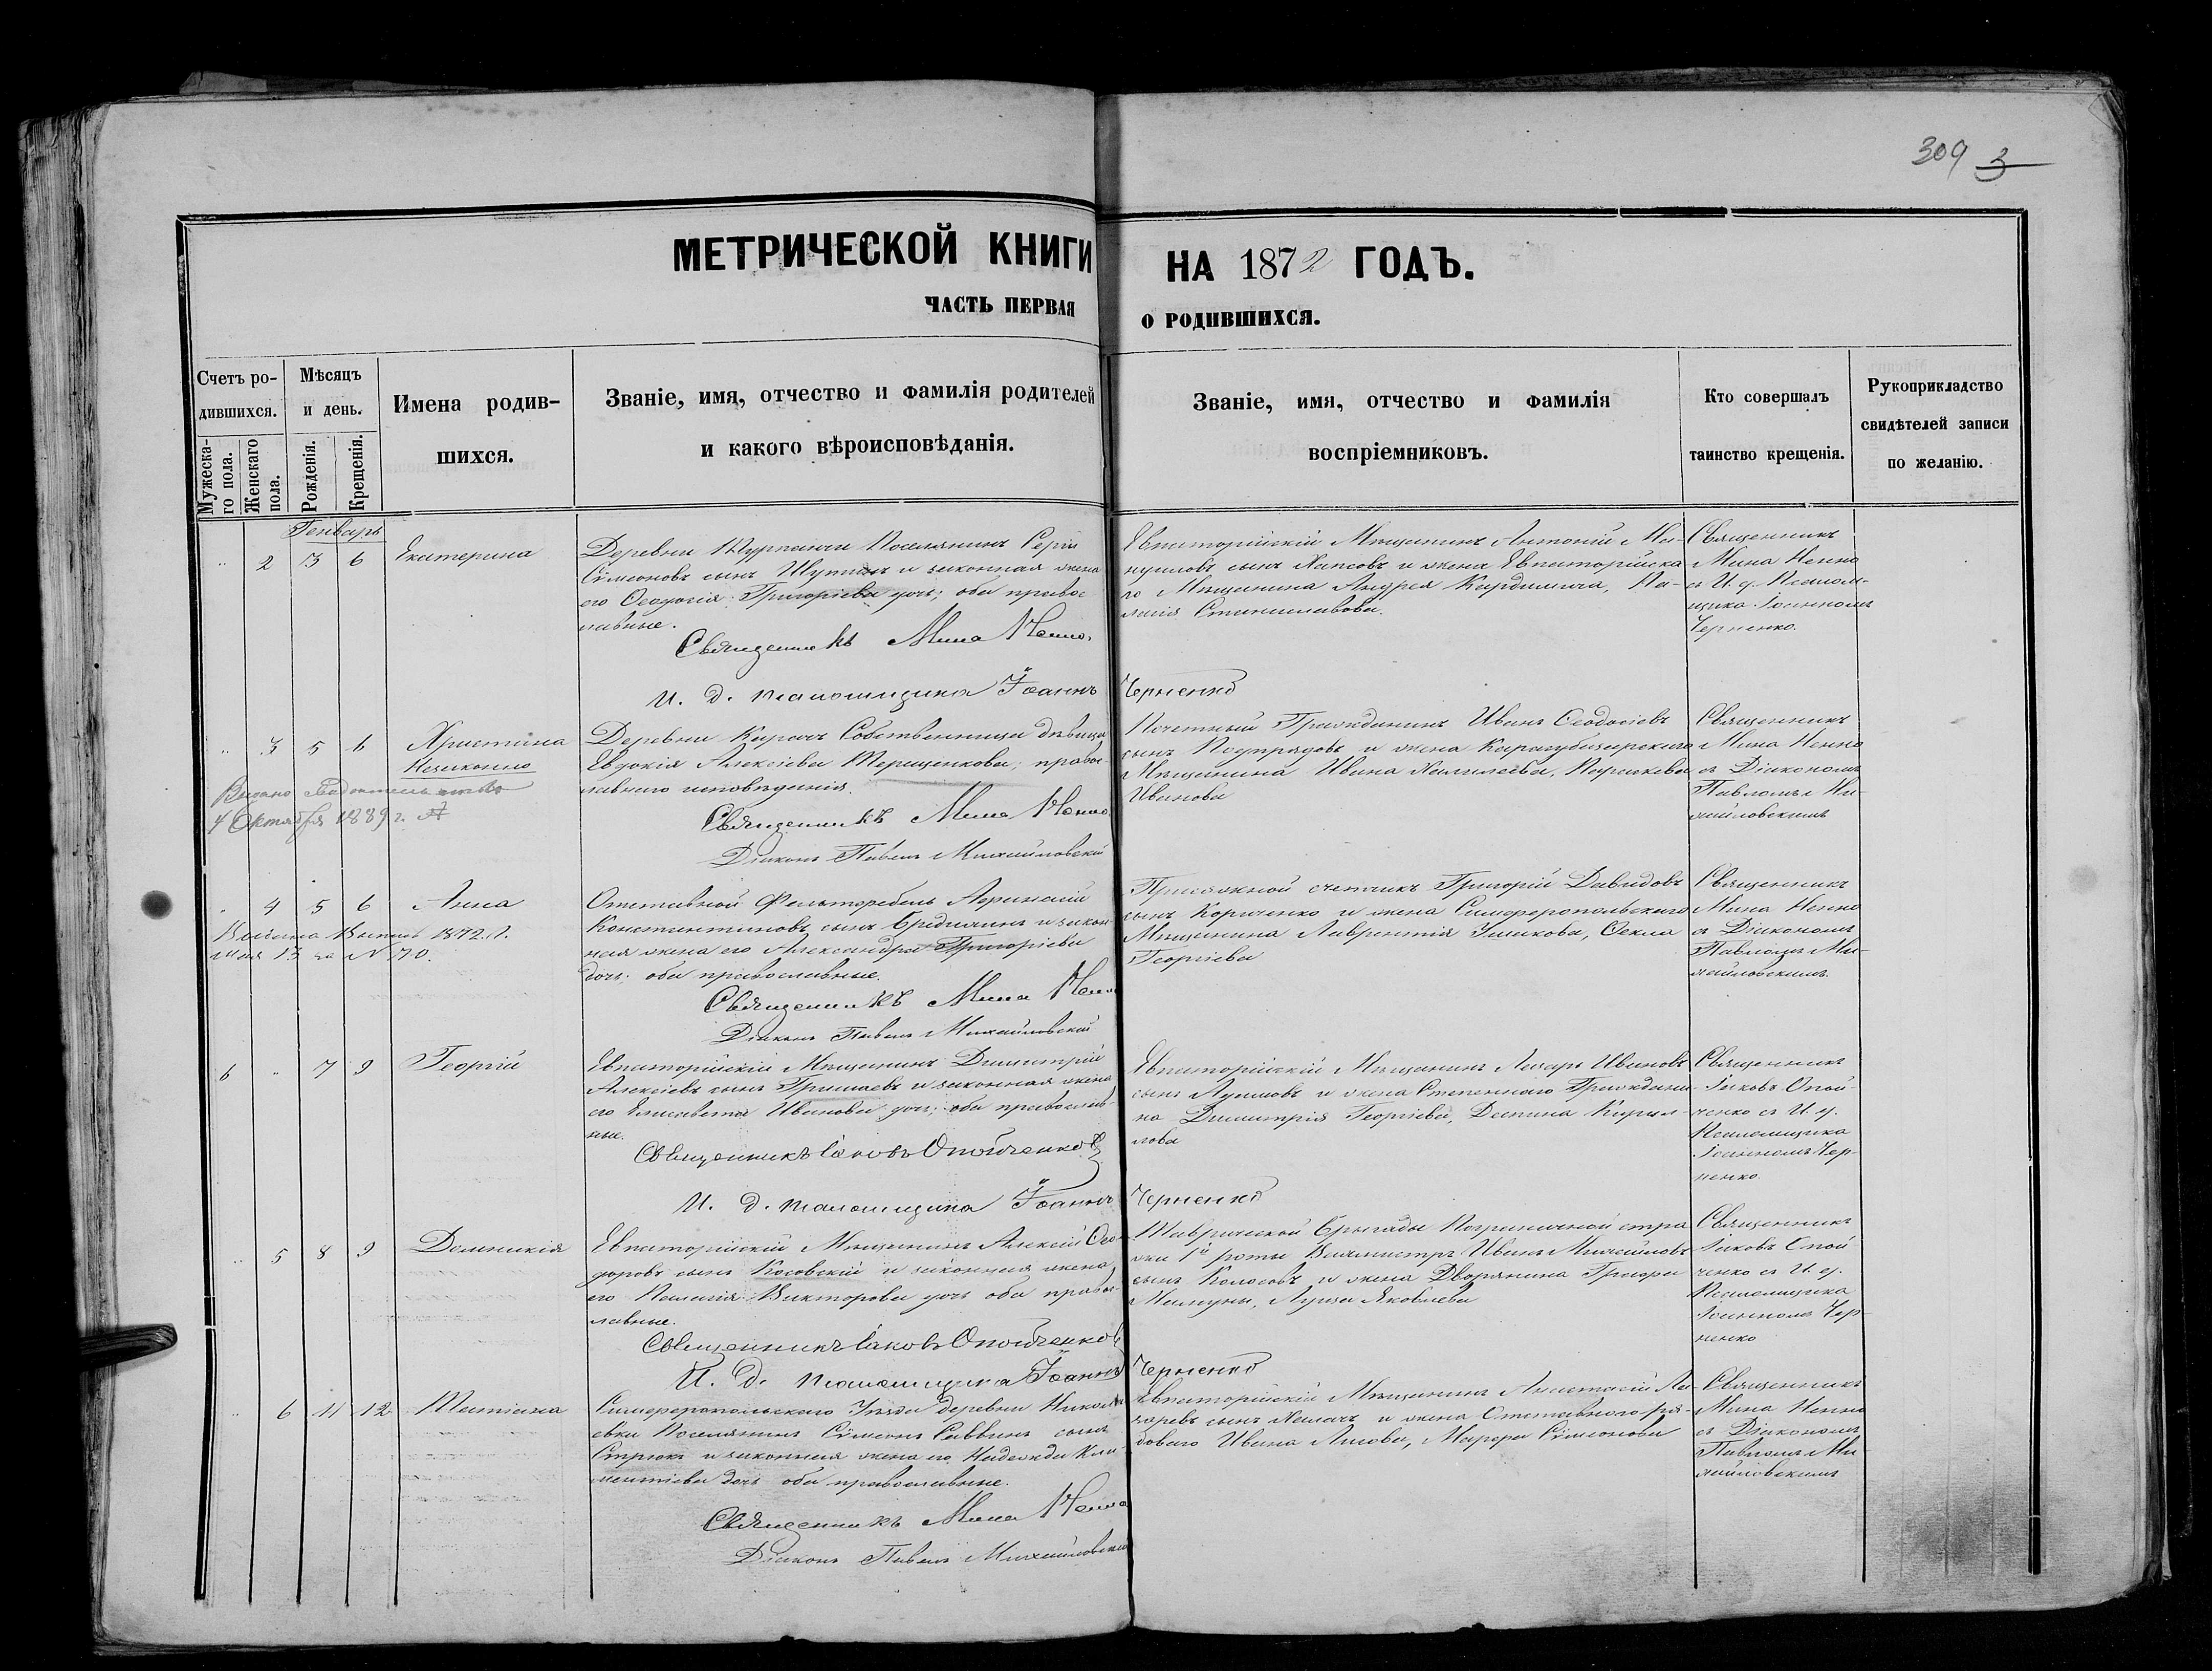 309 3
МЕТРИЧЕСКОЙ КНИГИ НА 1872 ГОДЪ.
ЧАСТЬ ПЕРВАЯ О РОДИВШИХСЯ.
Счетъ ро-
дившихся.
Мужеска-
го пола.
Женскаго
пола.
Мѣсяцъ
и день.
Рожденія.
Крещенія.
Имена родив-
шихся.
Званіе, имя, отчество и фамилія родителей
и какого вѣроисповѣданія.
Званіе, имя, отчество и фамилія
воспріемниковъ.
Кто совершалъ
таинство крещенія.
Рукоприкладство
свидѣтелей записи
по желанію.
Генварь
" 2 3 6 Екатерина
Деревни Поселянинъ
Сѵмеоновъ сынъ и законная жена
его Ѳеодосія Григоріева дочь; оба правос-
лавные.
Священникъ Мина
И. д. псаломщика Іоаннъ Черненко
Евпаторійскій Мѣщанинъ Антоній
сынъ и жена Евпаторійска-
го Мѣщанина Андрея
Станиславова.
Священникъ
Мина
съ И. д. Псалом-
щика Іоанномъ
Черненко.
" 3 5 6 Христина
Незаконно
Выдано Свидетельство
4 Октября 1889 г.
Деревни Карачъ Собственница дѣвица
Евдокія Алексіева Терещенкова; правос-
лавнаго исповѣданія.
Священникъ Мина
Діаконъ Павелъ Михайловскій
Почетный Гражданинъ Иванъ Ѳеодосіевъ
сынъ и жена Карасубазарскаго
Мѣщанина Ивана Параскева
Иванова
Священникъ
Мина
съ Діакономъ
Павломъ Ми-
хайловскимъ
" 4 5 6 Анна
1872 г.
Мая 13 за №
Отставной Фельдфебель
Константиновъ сынъ и закон-
ная жена его Александра Григоріева
дочь; оба православные.
Священникъ Мина
Діаконъ Павелъ Михайловскій
Присяжной счетчикъ Григорій Давидовъ
сынъ Корниенко и жена Симферопольскаго
Мѣщанина Лаврентія Ушакова, Ѳекла
Георгіева
Священникъ
Мина
съ Діакономъ
Павломъ Ми-
хайловскимъ.
6 " 7 9 Георгій
Евпаторійскій Мѣщанинъ Димитрій
Алексіевъ сынъ и законная жена
его Елисавета Иванова дочь; оба православ-
ные.
Священникъ Іаковъ Опойченко
И. д. псаломщика Іоаннъ Черненко
Евпаторійскій Мѣщанинъ Лазарь Ивановъ
сынъ и жена Степеннаго Граждани-
на Димитрія Георгіева, Кирил-
лова
Священникъ
Іаковъ Опой-
ченко съ И. д.
Псаломщика
Іоанномъ Чер-
ненко.
" 5 8 9 Домникія
Евпаторійскій Мѣщанинъ Алексій Ѳео-
доровъ сынъ Косовскій и законная жена
его Пелагія Викторова дочь оба правос-
лавные.
Священникъ Іаковъ Опойченко
И. д. псаломщика Іоаннъ Черненко
Таврической Бригады Пограничной стра-
жи 1й роты Вахмистръ Иванъ Михайловъ
сынъ Колосовъ и жена Дворянина
Яковлева
Священникъ
Іаковъ Опой
ченко съ И. д.
Псаломщика
Іоанномъ Чер-
ненко
" 6 11 12 Татіана
Симферопольскаго Уѣзда деревни Никола-
евки Поселянинъ Сѵмеонъ Саввинъ сынъ
и законная жена его Надежда Кли-
ментіева дочь оба православные.
Священникъ Мина
Діаконъ Павелъ Михайловскій
Евпаторійскій Мѣщанинъ Анастасій Ла-
заревъ сынъ и жена Отставного ря-
доваго Ивана Марѳа Сѵмеонова
Священникъ
Мина
съ Діакономъ
Павломъ Ми
хайловскимъ